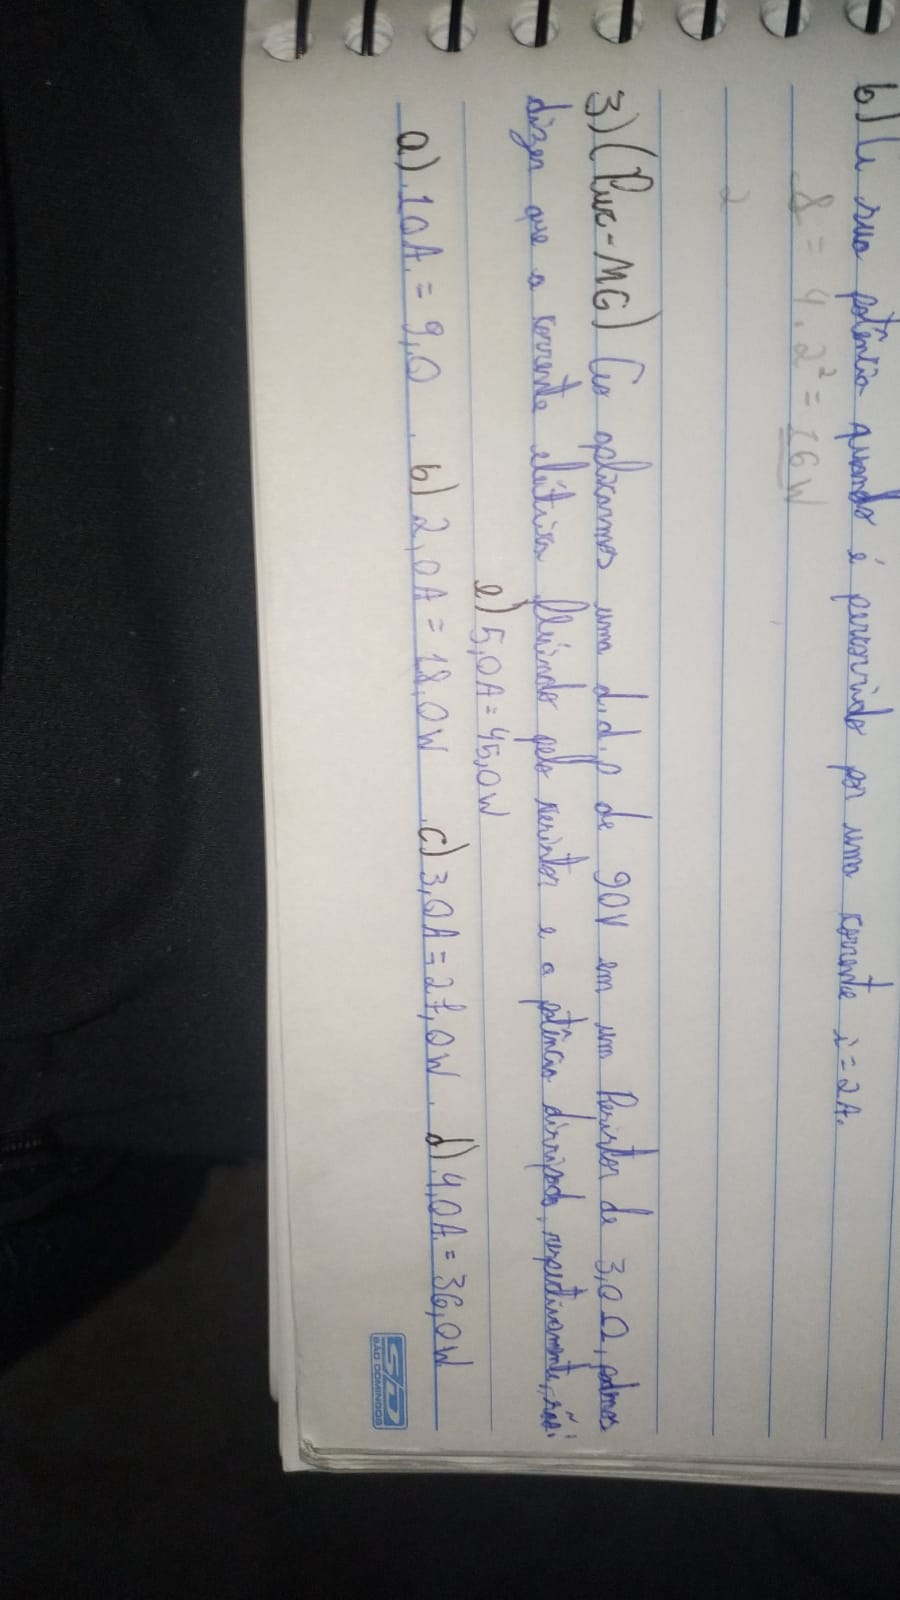 b) a sua potência quando é percorrido por uma corrente i = 2A.
P = 4.2² = 16 W
2
3) (Puc-MG) Ao aplicarmos uma d.d.p de 90V em um Resistor de 3,0 Ω, podmos
dizer que a corrente elétrica fluindo pelo resistor e a potência dissipada, respectivamente, são:
e) 5,0A = 45,0W
a) 10A = 9,0 b) 2,0A = 18,0W c) 3,0A = 27,0W d) 4,0A = 36,0W
SD
SÃO DOMINGOS